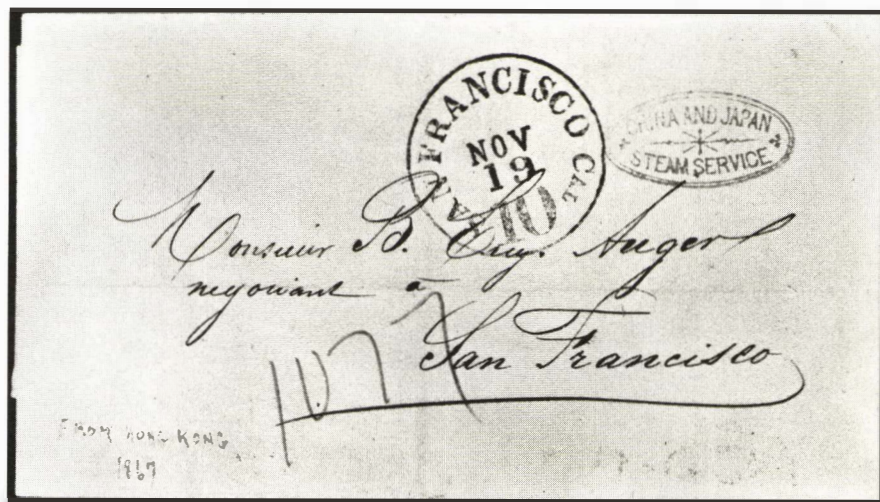 SAN FRANCISCO CAL
NOV
19
10
CHINA AND JAPAN
STEAM SERVICE
Monsieur B. Eug. Auger
negociant à
San Francisco
FROM HONG KONG
1867